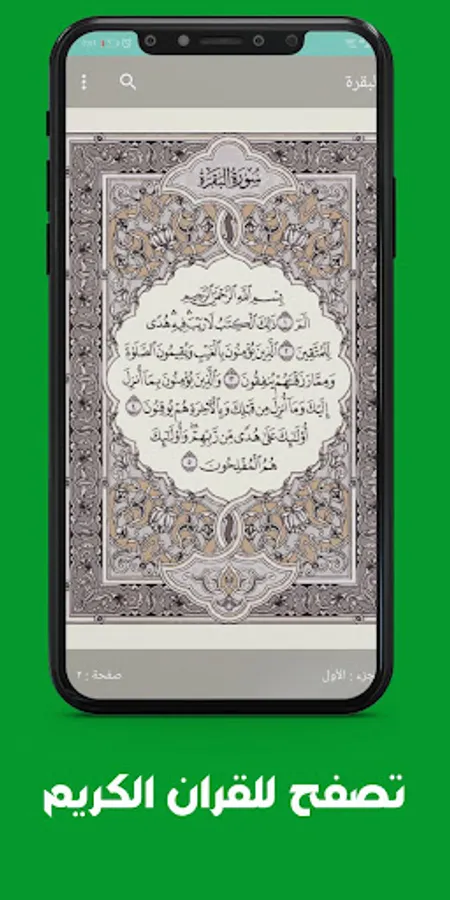 البقرة
سُورَةُ البَقَرَةِ
بِسْمِ اللَّهِ الرَّحْمَٰنِ الرَّحِيمِ
الٓمٓ ١ ذَٰلِكَ الْكِتَٰبُ لَا رَيْبَ فِيهِ هُدًى
لِّلْمُتَّقِينَ ٢ الَّذِينَ يُؤْمِنُونَ بِالْغَيْبِ وَيُقِيمُونَ الصَّلَوٰةَ
وَمِمَّا رَزَقْنَٰهُمْ يُنفِقُونَ ٣ وَالَّذِينَ يُؤْمِنُونَ بِمَا أُنزِلَ
إِلَيْكَ وَمَا أُنزِلَ مِن قَبْلِكَ وَبِالْآخِرَةِ هُمْ يُوقِنُونَ ٤
أُولَٰئِكَ عَلَىٰ هُدًى مِّن رَّبِّهِمْ وَأُولَٰئِكَ
هُمُ الْمُفْلِحُونَ ٥
جزء : الأول
صفحة : ٢
تصفح للقران الكريم